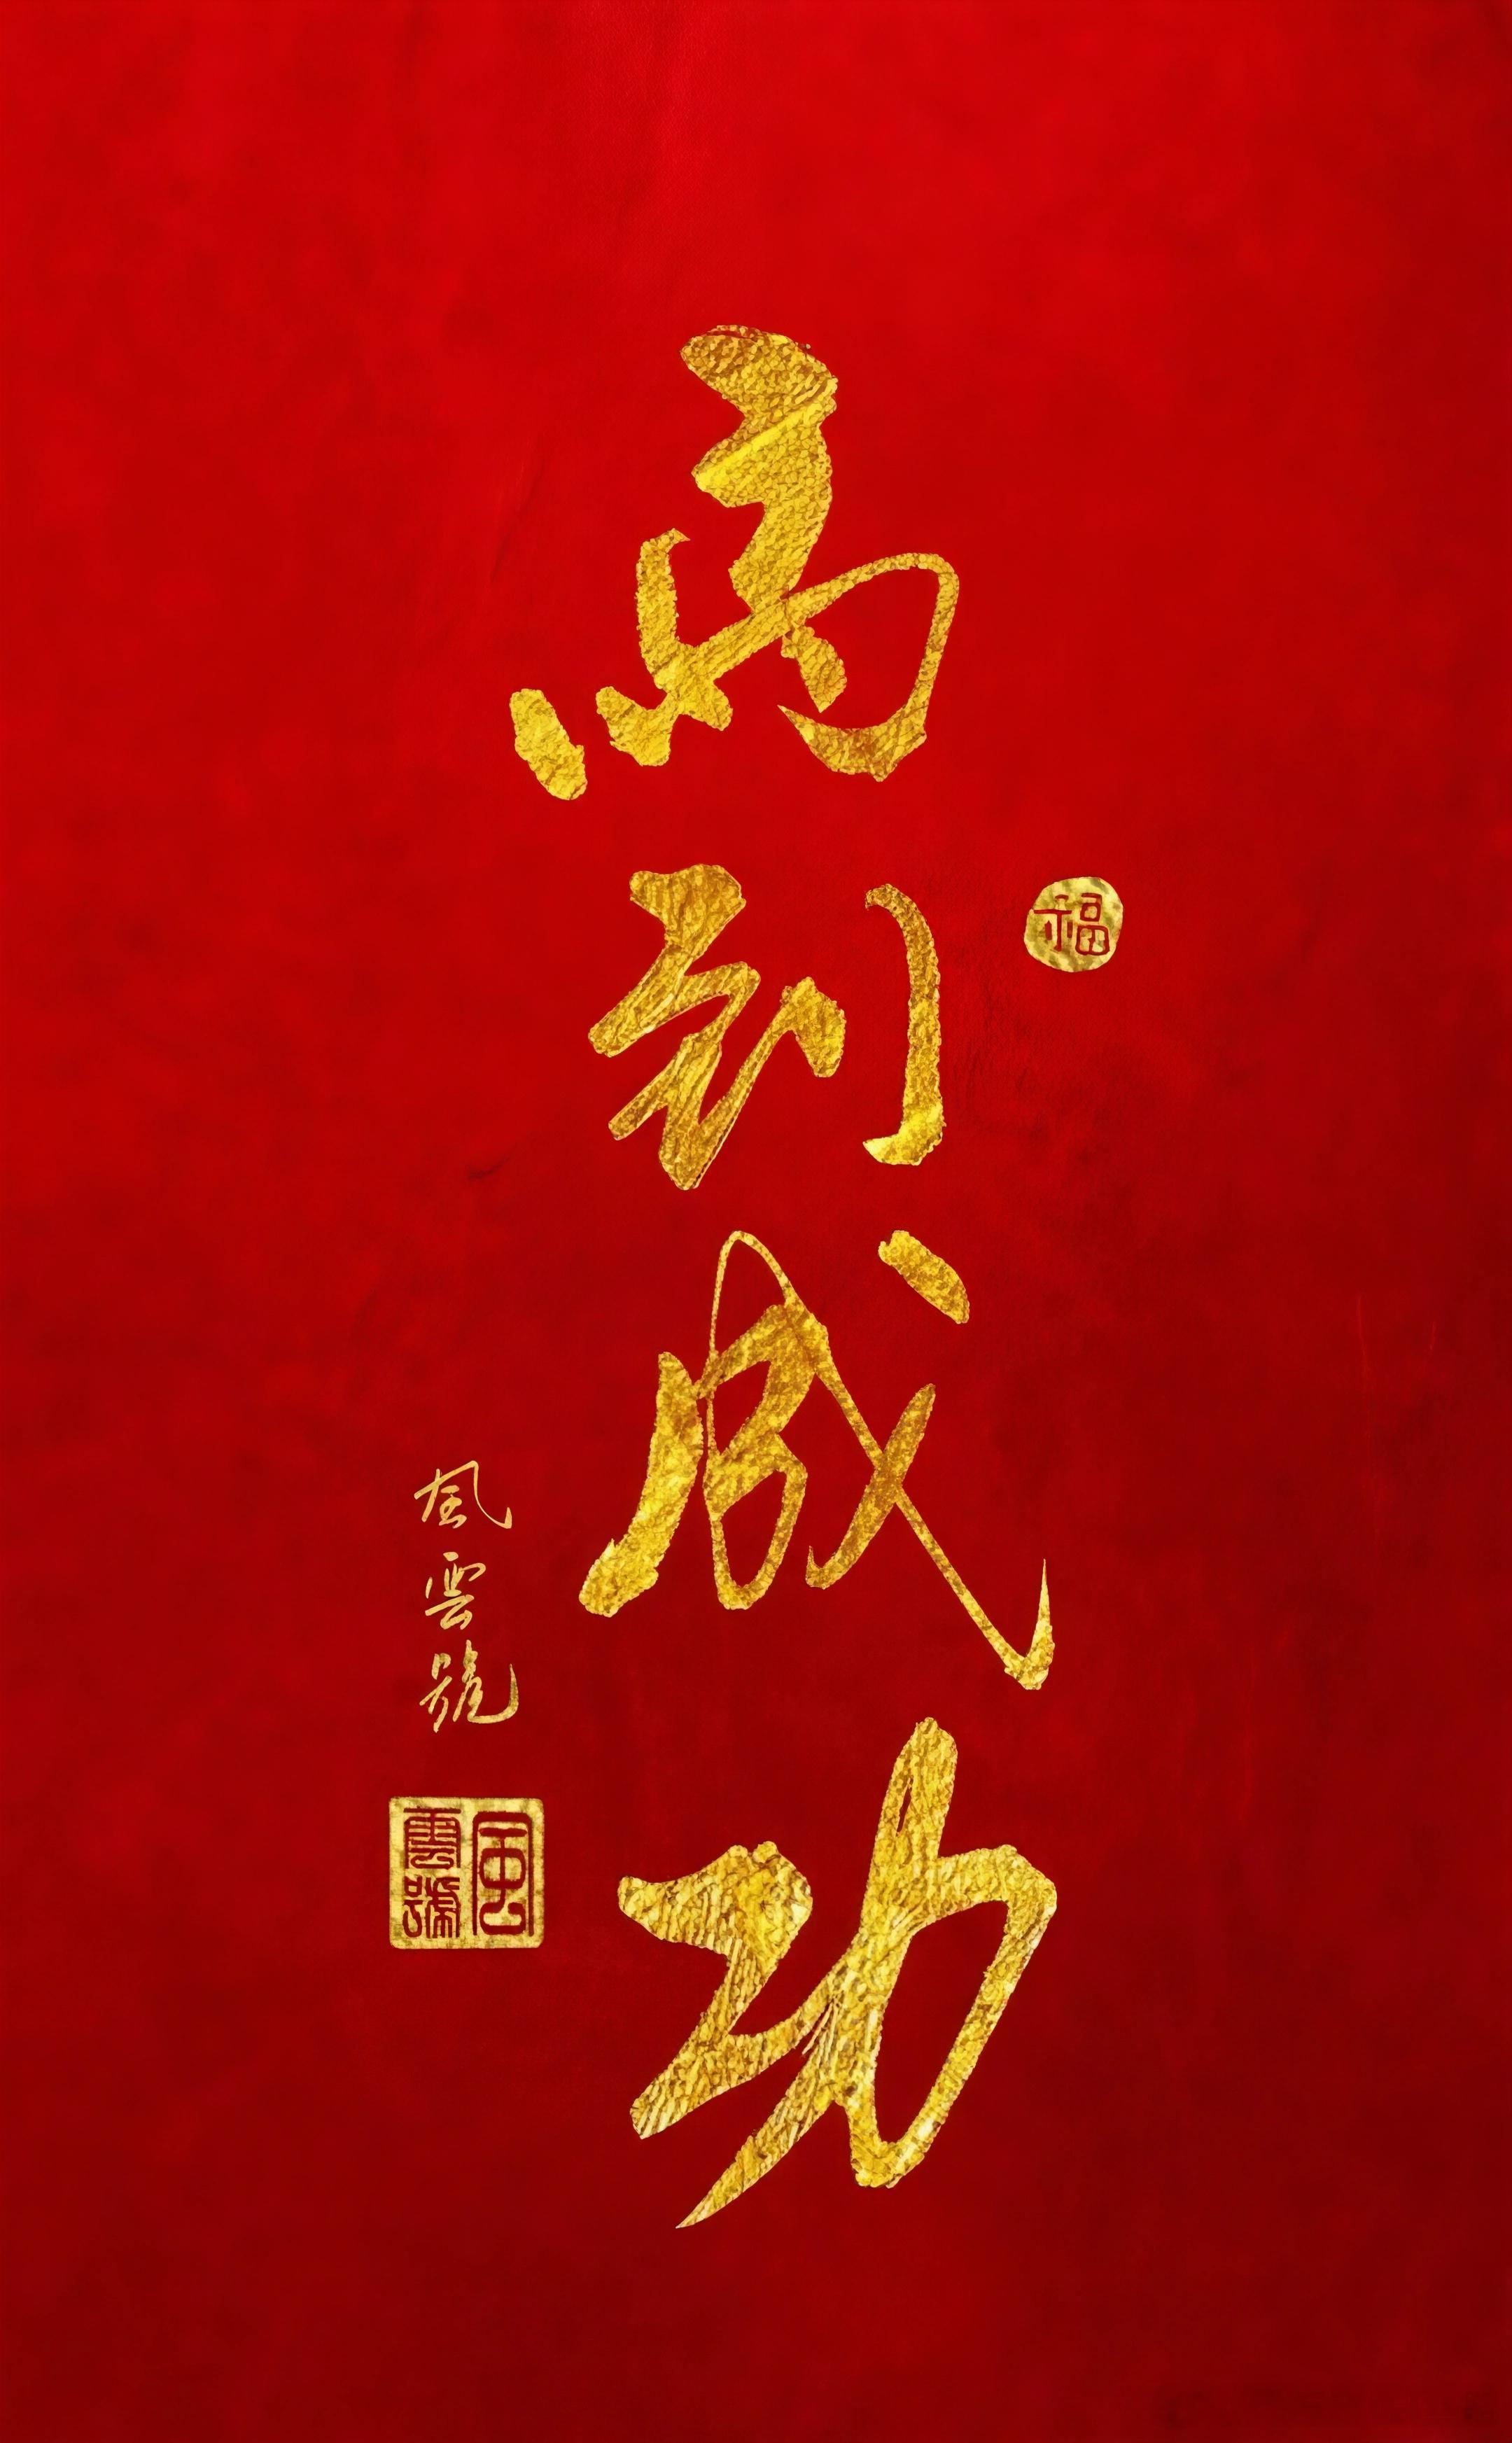 馬到成功
福
風雲號
風雲號